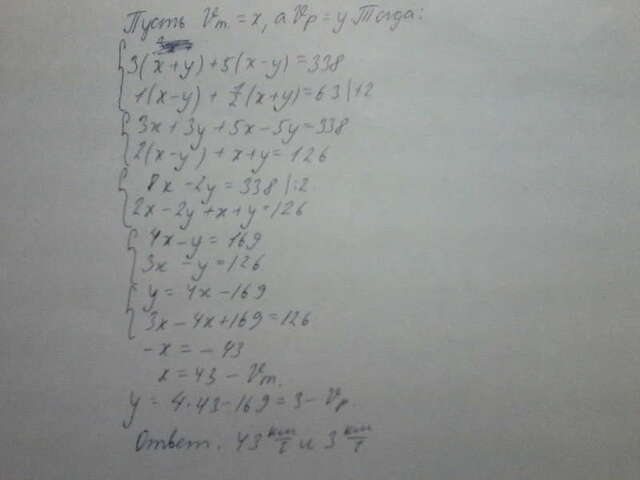 Пусть Vт. = x, а Vр = y Тогда:
3(x+y)+5(x-y)=338
1(x-y)+1/2(x+y)=63|·2
3x+3y+5x-5y=338
2(x-y)+x+y=126
8x-2y=338|:2
2x-2y+x+y=126
4x-y=169
3x-y=126
y=4x-169
3x-4x+169=126
-x=-43
x=43-Vт.
y=4·43-169=3-Vр.
Ответ. 43 км/г и 3 км/г